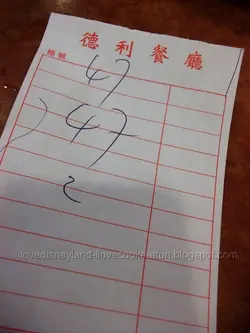 德利餐廳
檯號
47
47
2
lovedisneyland-ilovecookeattun.blogspot.com